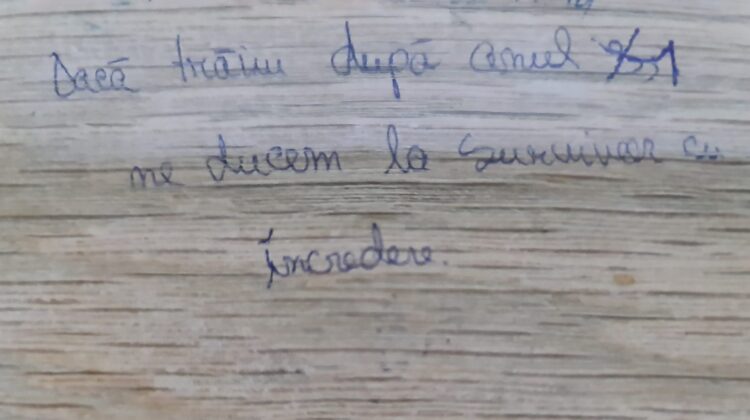 Dacă trăim după anul
ne ducem la Survivor cu
încredere.